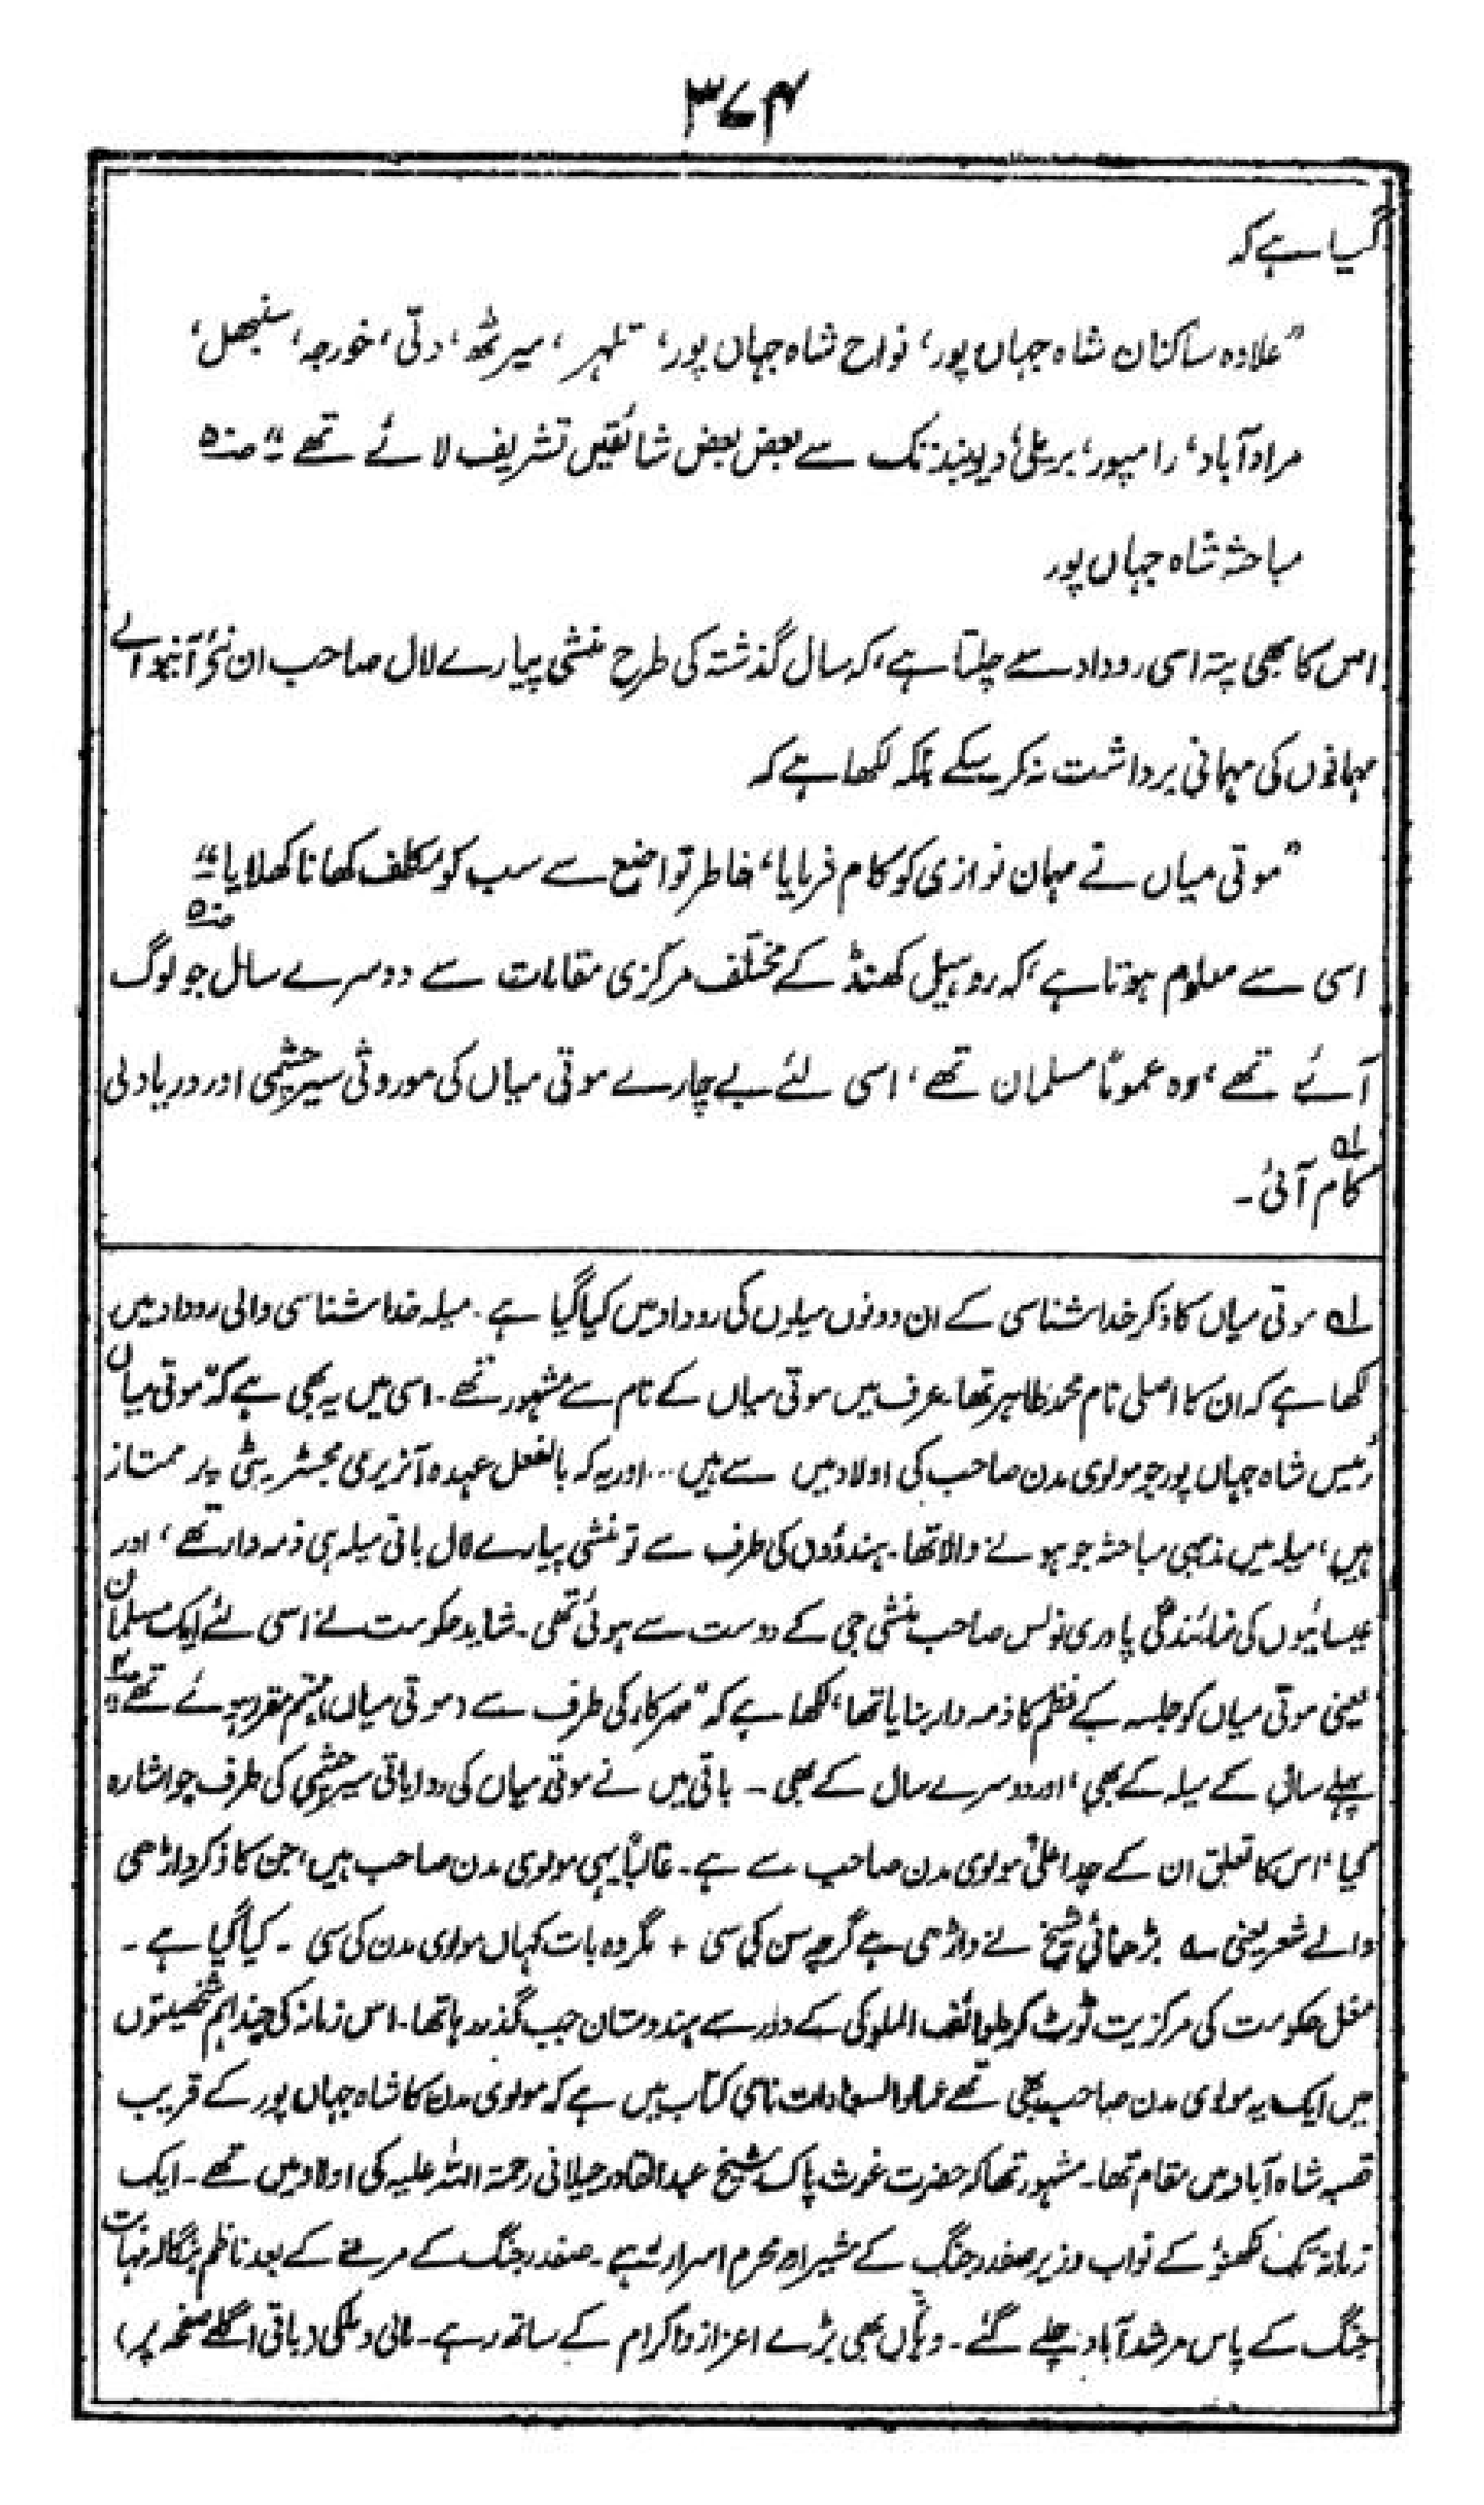 ۳۷۴
گیا ہے کہ
"علاوہ ساکنان شاہ جہاں پور، نواح شاہ جہاں پور، تلہر، میرٹھ، دلّی، خورجہ، سنبھل،
مراد آباد، رامپور، بریلی، دیوبند تک سے بعض بعض شائقیں تشریف لائے تھے" صــ۵
مباحثہ شاہ جہاں پور
اس کا بھی پتہ اسی روداد سے چلتا ہے، کہ سال گذشتہ کی طرح منشی پیارے لال صاحب ان نئے آنیوالے
مہمانوں کی مہمانی برداشت نہ کرسکے بلکہ لکھا ہے کہ
"موتی میاں نے مہمان نوازی کو کام فرمایا، خاطر تواضع سے سب کو مکلف کھانا کھلایا" صــ۵
اسی سے معلوم ہوتا ہے، کہ روہیل کھنڈ کے مختلف مرکزی مقامات سے دوسرے سال جو لوگ
آئے تھے، وہ عموماً مسلمان تھے، اسی لئے بے چارے موتی میاں کی موروثی سیرچشمی اور دریا دلی
کام آئی۔ لہ
لہ موتی میاں کا ذکر خدا شناسی کے ان دونوں میلوں کی روداد میں کیا گیا ہے۔ میلہ خدا شناسی والی روداد میں
لکھا ہے کہ ان کا اصلی نام محمد طاہر تھا۔ عرف میں موتی میاں کے نام سے مشہور تھے۔ اسی میں یہ بھی ہے کہ "موتی میاں
رئیس شاہ جہاں پور جو مولوی مدن صاحب کی اولاد میں سے ہیں ... اور یہ کہ بالفعل عہدہ آنریری مجسٹریٹی پر ممتاز
ہیں، میلہ میں مذہبی مباحثہ جو ہونے والا تھا۔ ہندوؤں کی طرف سے تو منشی پیارے لال بانی میلہ ہی ذمہ دار تھے، اور
عیسائیوں کی نمائندگی پادری نولس صاحب منشی جی کے دوست سے ہوئی تھی۔ شاید حکومت نے اسی لئے ایک مسلمان
یعنی موتی میاں کو جلسہ کے نظم کا ذمہ دار بنایا تھا، لکھا ہے کہ "سرکار کی طرف سے (موتی میاں) مہتمم مقرر ہوئے تھے"
پہلے سال کے میلہ کے بھی، اور دوسرے سال کے بھی۔ باقی میں نے موتی میاں کی روایاتی سیرچشمی کی طرف جو اشارہ
کیا، اس کا تعلق ان کے جد اعلیٰ مولوی مدن صاحب سے ہے۔ غالباً یہی مولوی مدن صاحب ہیں، جن کا ذکر داڑھی
والے شعر یعنی ؎ بڑھائی شیخ نے داڑھی ہے گرچہ سن کی سی + مگر وہ بات کہاں مولوی مدن کی سی ۔ کیا گیا ہے۔
مغل حکومت کی مرکزیت ٹوٹ کر طوائف الملوکی کے دور سے ہندوستان جب گذر رہا تھا۔ اس زمانہ کی چند اہم شخصیتوں
میں ایک یہ مولوی مدن صاحب بھی تھے عماد السعادات نامی کتاب میں ہے کہ مولوی مدن کا شاہ جہاں پور کے قریب
قصبہ شاہ آباد میں مقام تھا۔ مشہور تھا کہ حضرت غوث پاک شیخ عبدالقادر جیلانی رحمۃ اللہ علیہ کی اولاد میں تھے۔ ایک
زمانہ تک لکھنؤ کے نواب وزیر صفدر جنگ کے مشیر اور محرم اسرار رہے۔ صفدر جنگ کے مرنے کے بعد ناظم بنگالہ مہابت
جنگ کے پاس مرشد آباد چلے گئے۔ وہاں بھی بڑے اعزاز و اکرام کے ساتھ رہے۔ مالی و ملکی (باقی اگلے صفحہ پر)